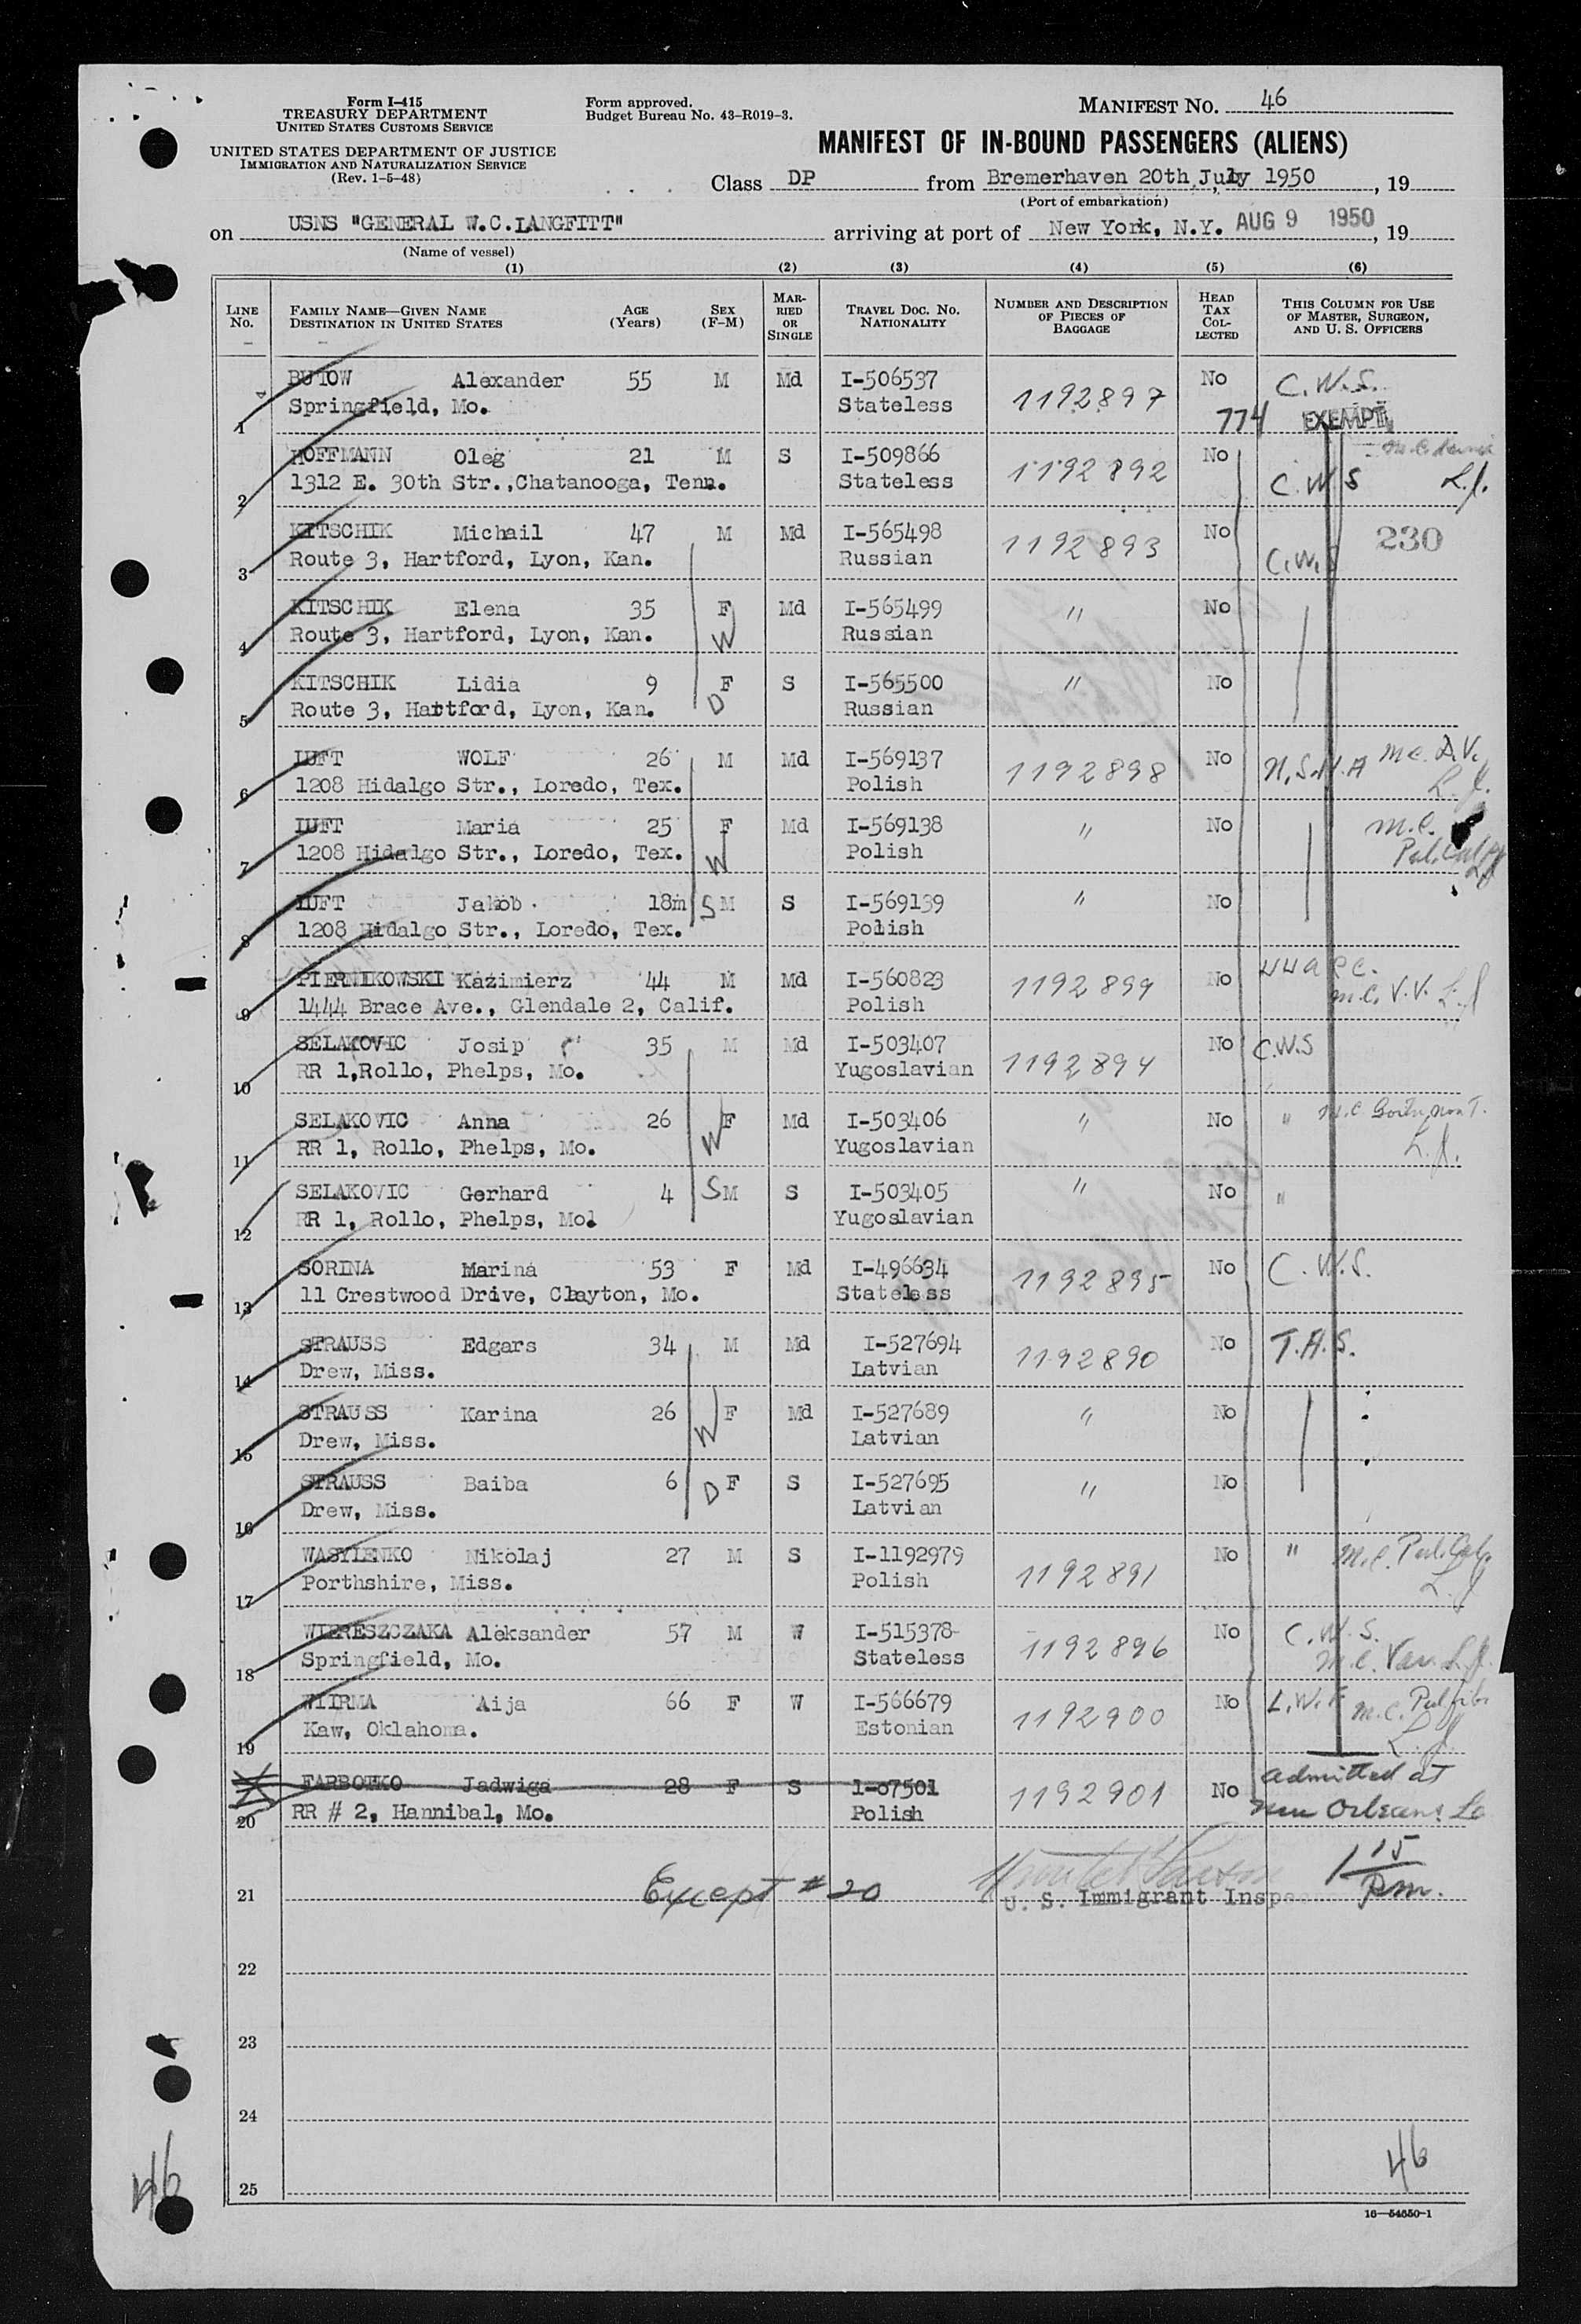 Form I-415
TREASURY DEPARTMENT
UNITED STATES CUSTOMS SERVICE
UNITED STATES DEPARTMENT OF JUSTICE
IMMIGRATION AND NATURALIZATION SERVICE
(Rev. 1-5-48)
Form approved.
Budget Bureau No. 43-R019-3.
MANIFEST NO. 46
MANIFEST OF IN-BOUND PASSENGERS (ALIENS)
Class DP from Bremerhaven 20th July 1950, 19
(Port of embarkation)
on USNS "GENERAL W.C.LANGFITT" arriving at port of New York, N.Y. AUG 9 1950, 19
(Name of vessel)
(1) (2) (3) (4) (5) (6)
LINE No. FAMILY NAME—GIVEN NAME DESTINATION IN UNITED STATES AGE (Years) SEX (F-M) MARRIED OR SINGLE TRAVEL DOC. NO. NATIONALITY NUMBER AND DESCRIPTION OF PIECES OF BAGGAGE HEAD TAX COLLECTED THIS COLUMN FOR USE OF MASTER, SURGEON, AND U. S. OFFICERS
BUTOW Alexander 55 M Md I-506537 1192897 No C.W.S.
1 Springfield, Mo. Stateless 774 EXEMPT
HOFFMANN Oleg 21 M S I-509866 1192892 No C.W.S L.J.
2 1312 E. 30th Str.,Chatanooga, Tenn. Stateless
KITSCHIK Michail 47 M Md I-565498 1192893 No C.W.S 230
3 Route 3, Hartford, Lyon, Kan. Russian
KITSCHIK Elena 35 F W Md I-565499 " No
4 Route 3, Hartford, Lyon, Kan. Russian
KITSCHIK Lidia 9 F D S I-565500 " No
5 Route 3, Hartford, Lyon, Kan. Russian
LUFT WOLF 26 M Md I-569137 1192898 No m.c. L.J.
6 1208 Hidalgo Str., Loredo, Tex. Polish
LUFT Maria 25 F W Md I-569138 " No m.c.
7 1208 Hidalgo Str., Loredo, Tex. Polish
LUFT Jakob 18m S M S I-569139 " No
8 1208 Hidalgo Str., Loredo, Tex. Polish
PIERNIKOWSKI Kazimierz 44 M Md I-560823 1192899 No m.c. V.V. L.J
9 1444 Brace Ave., Glendale 2, Calif. Polish
SELAKOVIC Josip 35 M Md I-503407 1192894 No C.W.S
10 RR 1,Rollo, Phelps, Mo. Yugoslavian
SELAKOVIC Anna 26 W F Md I-503406 " No " m.c. L.J.
11 RR 1, Rollo, Phelps, Mo. Yugoslavian
SELAKOVIC Gerhard 4 S M S I-503405 " No "
12 RR 1, Rollo, Phelps, Mo. Yugoslavian
SORINA Marina 53 F Md I-496634 1192895 No C.W.S.
13 11 Crestwood Drive, Clayton, Mo. Stateless
STRAUSS Edgars 34 M Md I-527694 1192890 No T.A.S.
14 Drew, Miss. Latvian
STRAUSS Karina 26 W F Md I-527689 " No
15 Drew, Miss. Latvian
STRAUSS Baiba 6 D F S I-527695 " No
16 Drew, Miss. Latvian
WASYLENKO Nikolaj 27 M S I-1192979 1192891 No " m.c. L.J
17 Porthshire, Miss. Polish
WIERESZCZAKA Aleksander 57 M W I-515378 1192896 No C.W.S.
18 Springfield, Mo. Stateless m.c. Var. L.J.
WIIRMA Aija 66 F W I-566679 1192900 No L.W.F. m.c. L.J
19 Kaw, Oklahoma. Estonian
FARBOTKO Jadwiga 28 F S 1-07501 1192901 No admitted at
20 RR # 2, Hannibal, Mo. Polish New Orleans La
21 Except #20 U. S. Immigrant Inspe 1 15 Pm.
22
23
24
25
46
46
16—54650-1